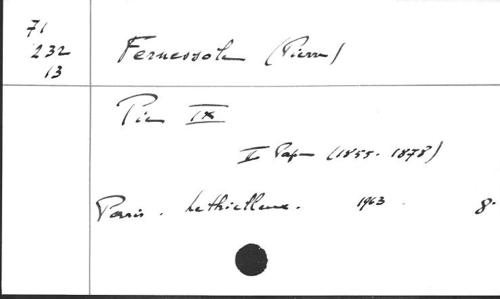 71
232
13
Fernessole (Pierre)
Pie IX
II Pape (1855-1878)
Paris. Lethielleux. 1963. 8°